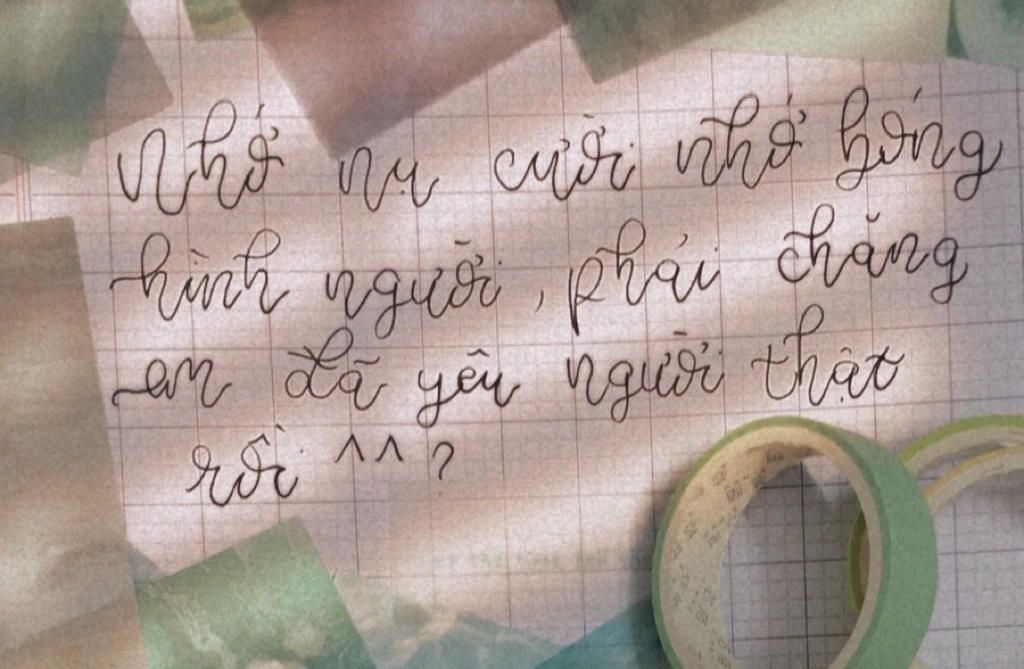 Nhớ nụ cười nhớ bóng
hình người, phải chăng
em đã yêu người thật
rồi ^^?